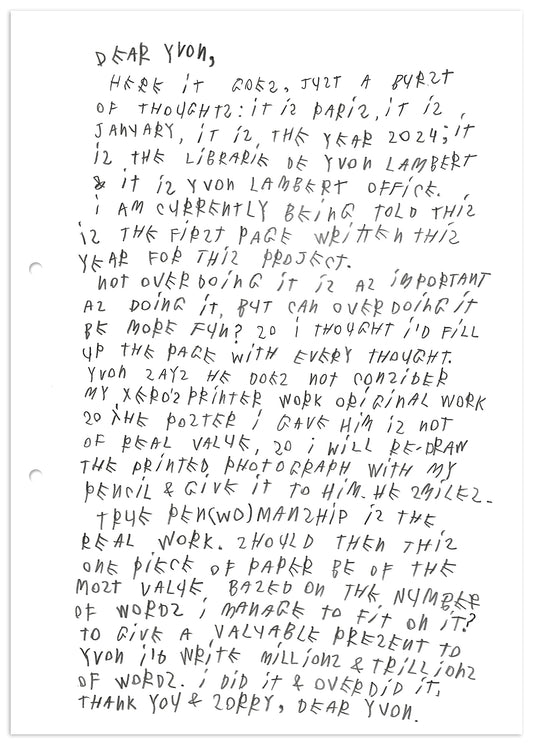 DEAR YVON,
HERE iT GOES, JUST A BURST
OF THOUGHTS: iT iS PARiS, iT iS
JANUARY, iT iS, THE YEAR 2024; iT
iS THE LiBRARiE DE YVON LAMBERT
& iT iS YVON LAMBERT OFFiCE.
i AM CURRENTLY BEiNG TOLD THiS
iS THE FiRST PAGE WRiTTEN THiS
YEAR FOR THiS PROJECT.
NOT OVERDOiNG iT iS AS iMPORTANT
AS DOiNG iT, BUT CAN OVERDOiNG iT
BE MORE FUN? SO i THOUGHT i'D FiLL
UP THE PAGE WiTH EVERY THOUGHT.
YVON SAYS HE DOES NOT CONSiDER
MY XEROS PRiNTER WORK ORiGiNAL WORK
SO THE POSTER i GAVE HiM iS NOT
OF REAL VALUE, SO i WiLL RE-DRAW
THE PRiNTED PHOTOGRAPH WiTH MY
PENCiL & GiVE iT TO HiM. HE SMiLES.
TRUE PEN(WO)MANSHiP iS THE
REAL WORK. SHOULD THEN THiS
ONE PiECE OF PAPER BE OF THE
MOST VALUE, BASED ON THE NUMBER
OF WORDS i MANAGE TO FiT ON iT?
TO GiVE A VALUABLE PRESENT TO
YVON i'D WRiTE MiLLiONS & TRiLLiONS
OF WORDS. i DiD iT & OVERDiD iT,
THANK YOU & SORRY, DEAR YVON.